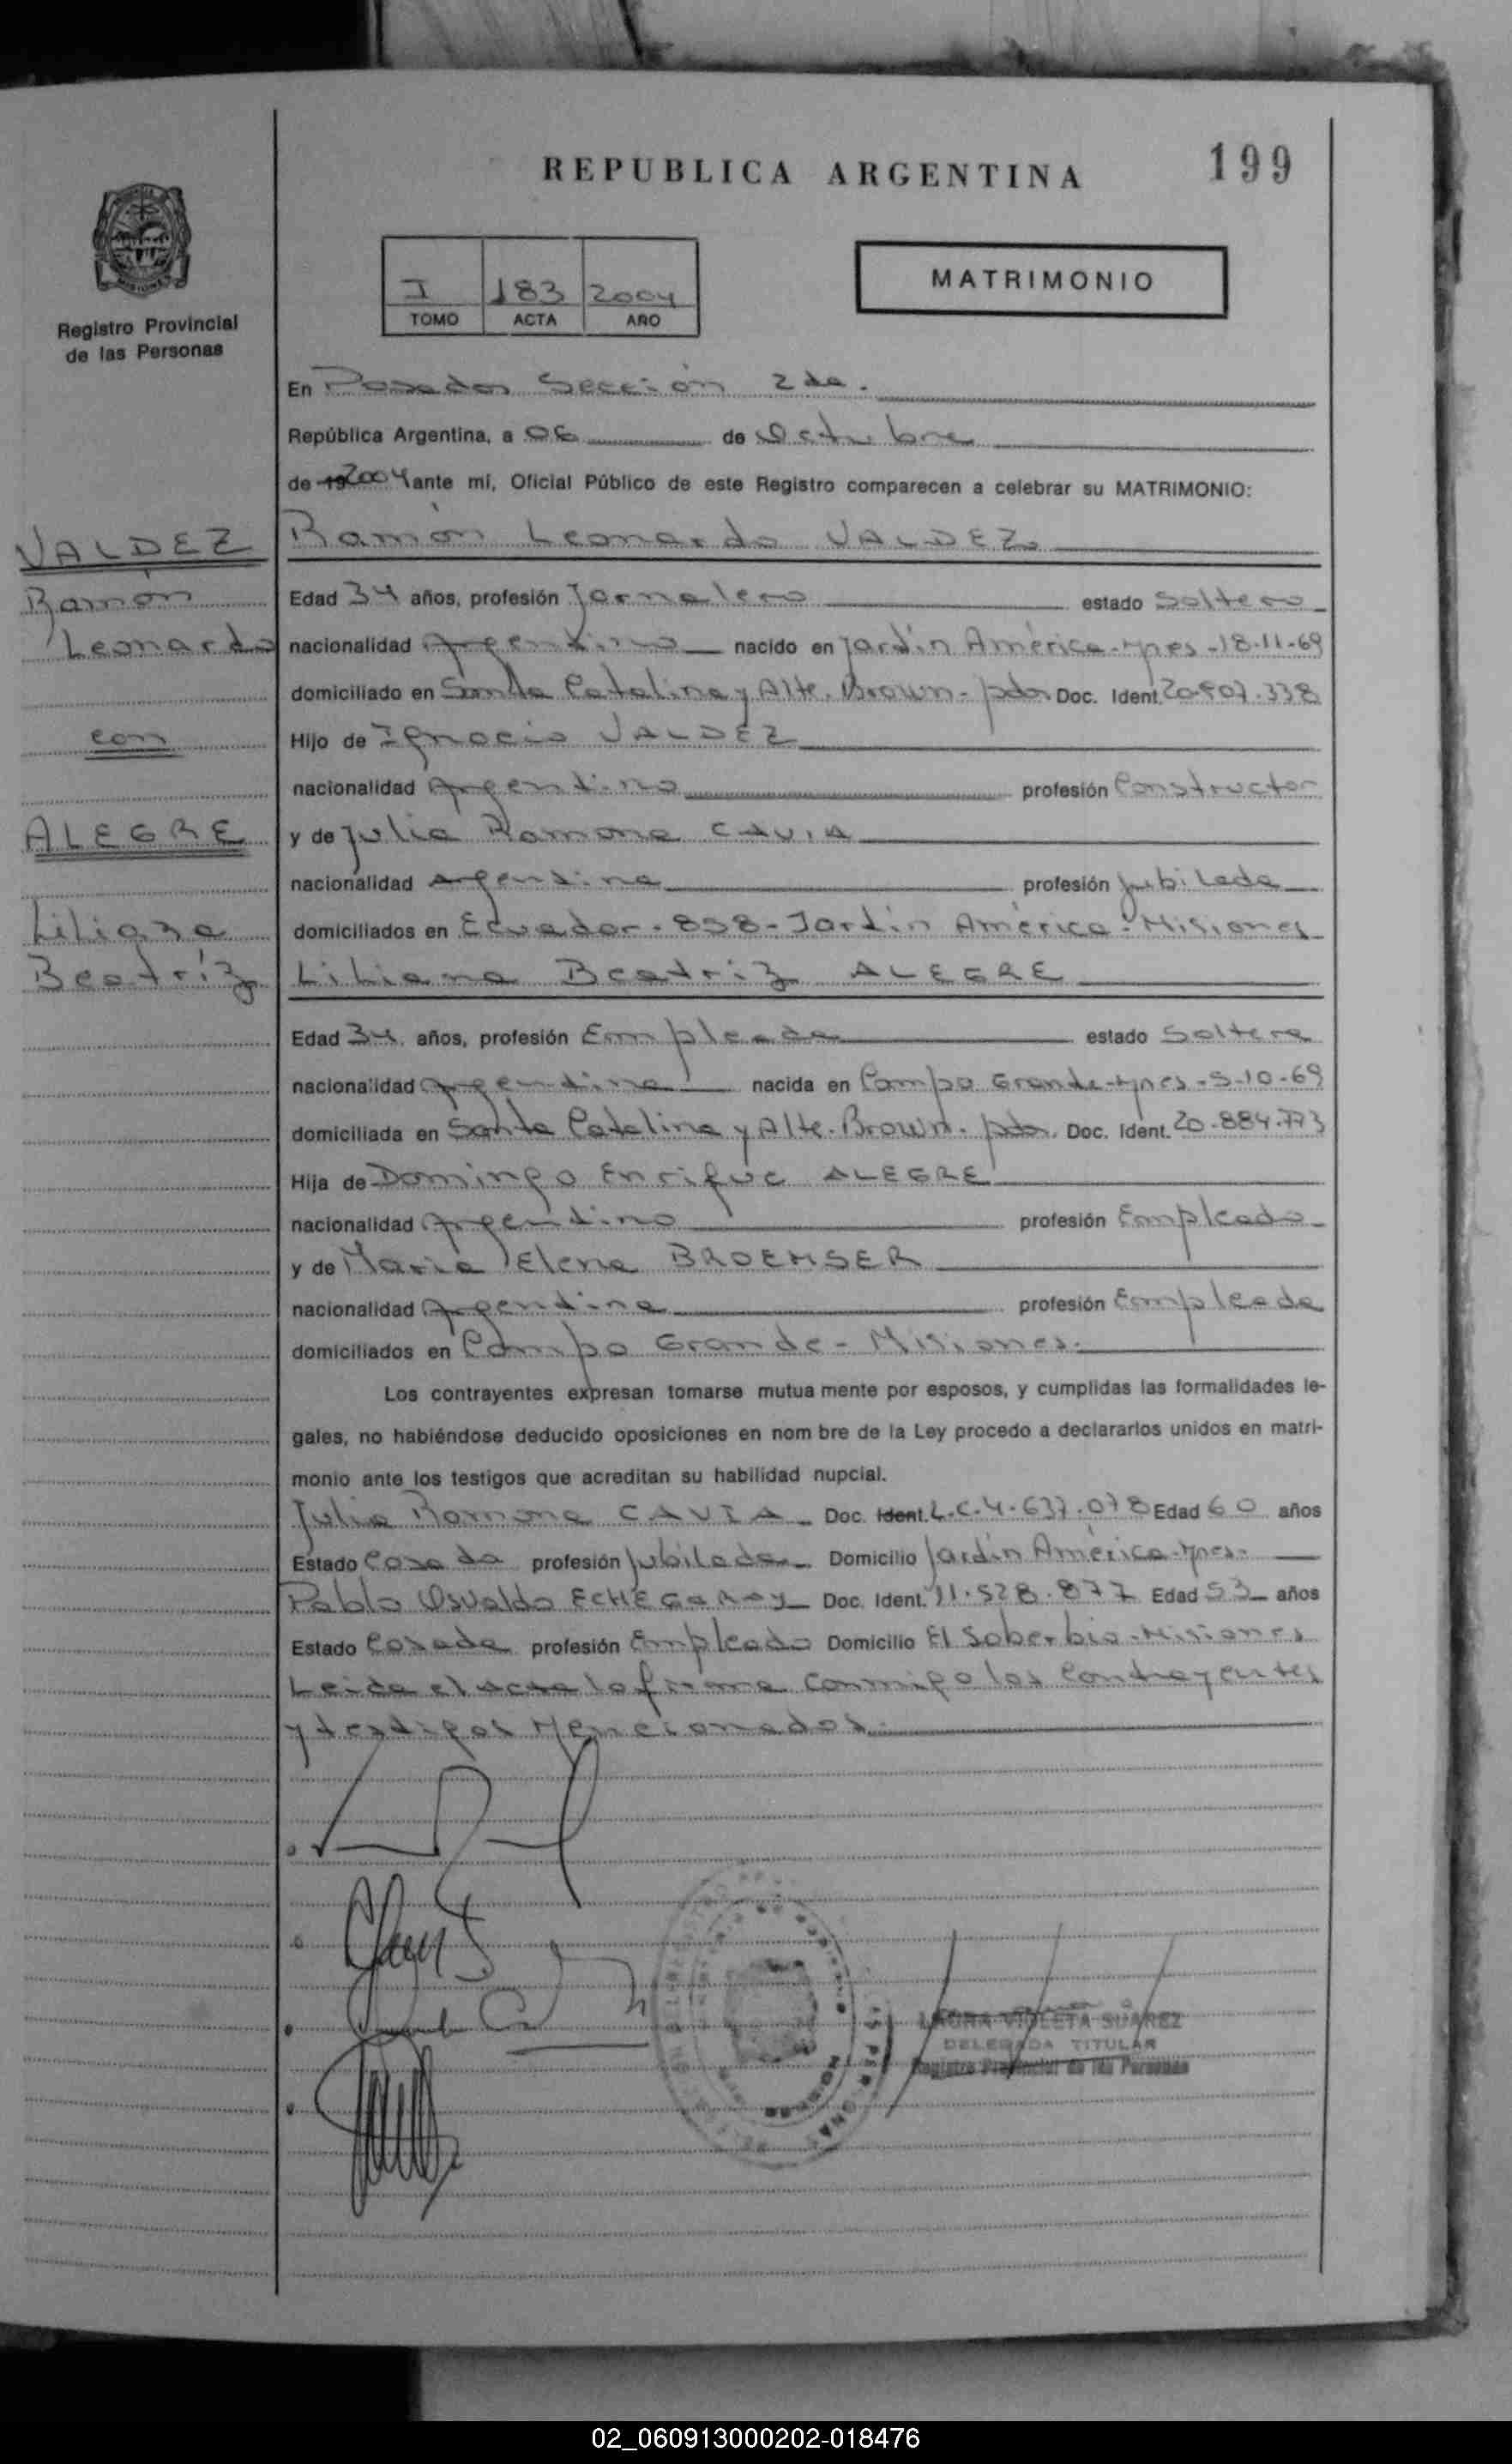 REPUBLICA ARGENTINA
199
Registro Provincial
de las Personas
I 183 2004
TOMO ACTA AÑO
MATRIMONIO
En Posadas Sección 2da.
República Argentina, a 06 de Octubre
de 19 2004 ante mí, Oficial Público de este Registro comparecen a celebrar su MATRIMONIO:
VALDEZ
Ramón
Leonardo
con
ALEGRE
Liliana
Beatríz
Ramón Leonardo VALDEZ
Edad 34 años, profesión Jornalero estado Soltero
nacionalidad Argentino nacido en Jardín América-Mnes-18-11-69
domiciliado en Santa Catalina y Alte. Brown-pdas Doc. Ident. 20.907.338
Hijo de Ignacio VALDEZ
nacionalidad Argentino profesión Constructor
y de Julia Ramona CAVIA
nacionalidad Argentina profesión Jubilada
domiciliados en Ecuador-858-Jardín América-Misiones
Liliana Beatríz ALEGRE
Edad 34 años, profesión Empleada estado Soltera
nacionalidad Argentina nacida en Campo Grande-Mnes-5-10-69
domiciliada en Santa Catalina y Alte. Brown-pdas. Doc. Ident. 20.884.773
Hija de Domingo Enrique ALEGRE
nacionalidad Argentino profesión Empleado
y de Maria Elena BROEMSER
nacionalidad Argentina profesión Empleada
domiciliados en Campo Grande-Misiones.
Los contrayentes expresan tomarse mutua mente por esposos, y cumplidas las formalidades le-
gales, no habiéndose deducido oposiciones en nom bre de la Ley procedo a declararlos unidos en matri-
monio ante los testigos que acreditan su habilidad nupcial.
Julia Ramona CAVIA Doc. Ident. L.C.4.637.078 Edad 60 años
Estado Casada profesión Jubilada Domicilio Jardín América-Mnes.
Pablo Osvaldo ECHEGARAY Doc. Ident. 11.528.877 Edad 53 años
Estado Casado profesión Empleado Domicilio El Soberbio-Misiones
Leida el acta la firma conmigo los Contrayentes
y testigos Mencionados.
LAURA VIOLETA SUAREZ
DELEGADA TITULAR
Registro Provincial de las Personas
02_060913000202-018476